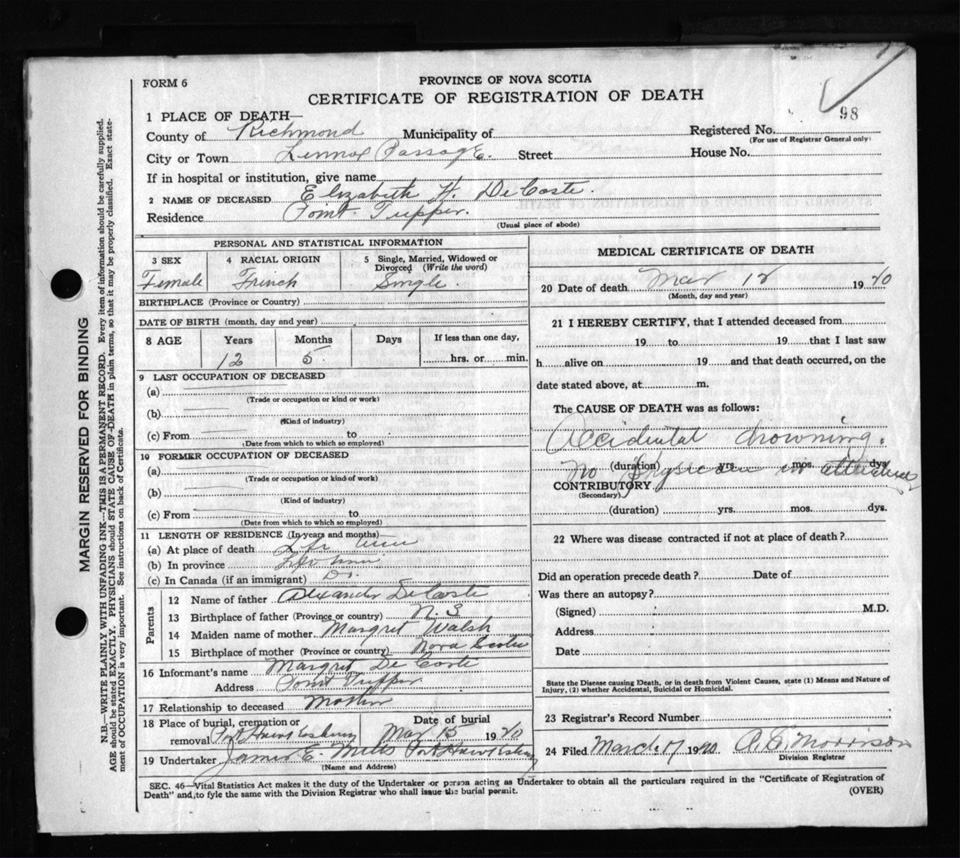 98
FORM 6
PROVINCE OF NOVA SCOTIA
CERTIFICATE OF REGISTRATION OF DEATH
1 PLACE OF DEATH—
County of Richmond Municipality of Registered No.
(For use of Registrar General only)
City or Town Lennox Passage. Street House No.
If in hospital or institution, give name
2 NAME OF DECEASED Elizabeth H DeCoste.
Residence Point Tupper.
(Usual place of abode)
PERSONAL AND STATISTICAL INFORMATION
3 SEX 4 RACIAL ORIGIN 5 Single, Married, Widowed or Divorced (Write the word)
Female French Single.
BIRTHPLACE (Province or Country)
DATE OF BIRTH (month, day and year)
8 AGE Years Months Days If less than one day,
12 5 hrs. or min.
9 LAST OCCUPATION OF DECEASED
(a)
(Trade or occupation or kind or work)
(b)
(Kind of industry)
(c) From to
(Date from which to which so employed)
10 FORMER OCCUPATION OF DECEASED
(a)
(Trade or occupation or kind of work)
(b)
(Kind of industry)
(c) From to
(Date from which to which so employed)
11 LENGTH OF RESIDENCE (In years and months)
(a) At place of death Life time
(b) In province
(c) In Canada (if an immigrant) Do.
Parents
12 Name of father Alexander DeCoste
13 Birthplace of father (Province or country) N. S
14 Maiden name of mother Margret Walsh
15 Birthplace of mother (Province or country) Nova Scotia
16 Informant's name Margret De Coste
Address Point Tupper
17 Relationship to deceased Mother
18 Place of burial, cremation or removal Port Hawkesbury Date of burial Mar 15 1940
19 Undertaker James E. Mills Port Hawkesbury
(Name and Address)
MEDICAL CERTIFICATE OF DEATH
20 Date of death Mar 12 1940
(Month, day and year)
21 I HEREBY CERTIFY, that I attended deceased from
19 to 19 that I last saw
h alive on 19 and that death occurred, on the
date stated above, at m.
The CAUSE OF DEATH was as follows:
Accidental drowning.
(duration) yrs. mos. dys.
No physician in attendance
CONTRIBUTORY
(Secondary)
(duration) yrs. mos. dys.
22 Where was disease contracted if not at place of death?
Did an operation precede death? Date of
Was there an autopsy?
(Signed) M.D.
Address
Date
State the Disease causing Death, or in death from Violent Causes, state (1) Means and Nature of
Injury, (2) whether Accidental, Suicidal or Homicidal.
23 Registrar's Record Number
24 Filed March 17 1940 Morrison
Division Registrar
SEC. 46—Vital Statistics Act makes it the duty of the Undertaker or person acting as Undertaker to obtain all the particulars required in the "Certificate of Registration of
Death" and to fyle the same with the Division Registrar who shall issue the burial permit.
(OVER)
MARGIN RESERVED FOR BINDING
N.B.—WRITE PLAINLY WITH UNFADING INK—THIS IS A PERMANENT RECORD. Every item of information should be carefully supplied.
AGE should be stated EXACTLY. PHYSICIANS should STATE CAUSE OF DEATH in plain terms, so that it may be properly classified. Exact state-
ment of OCCUPATION is very important. See instructions on back of Certificate.